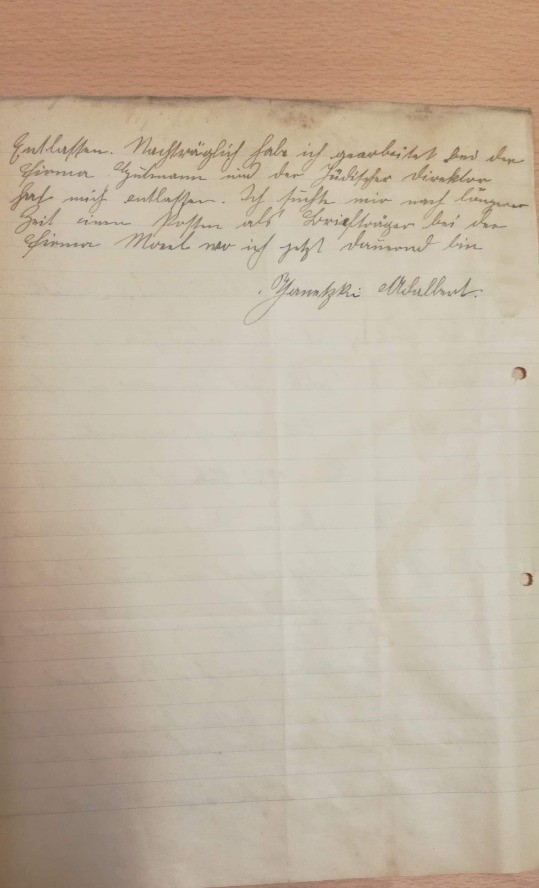 Entlassen. Nachträglich habe ich gearbeitet bei der
Firma Gutmann und der Jüdischer Direktor
hat mich entlassen. Ich suchte mir nach längerer
Zeit einen Posten als Briefträger bei der
Firma wo ich jetzt dauernd bin
Janetzki Adalbert.